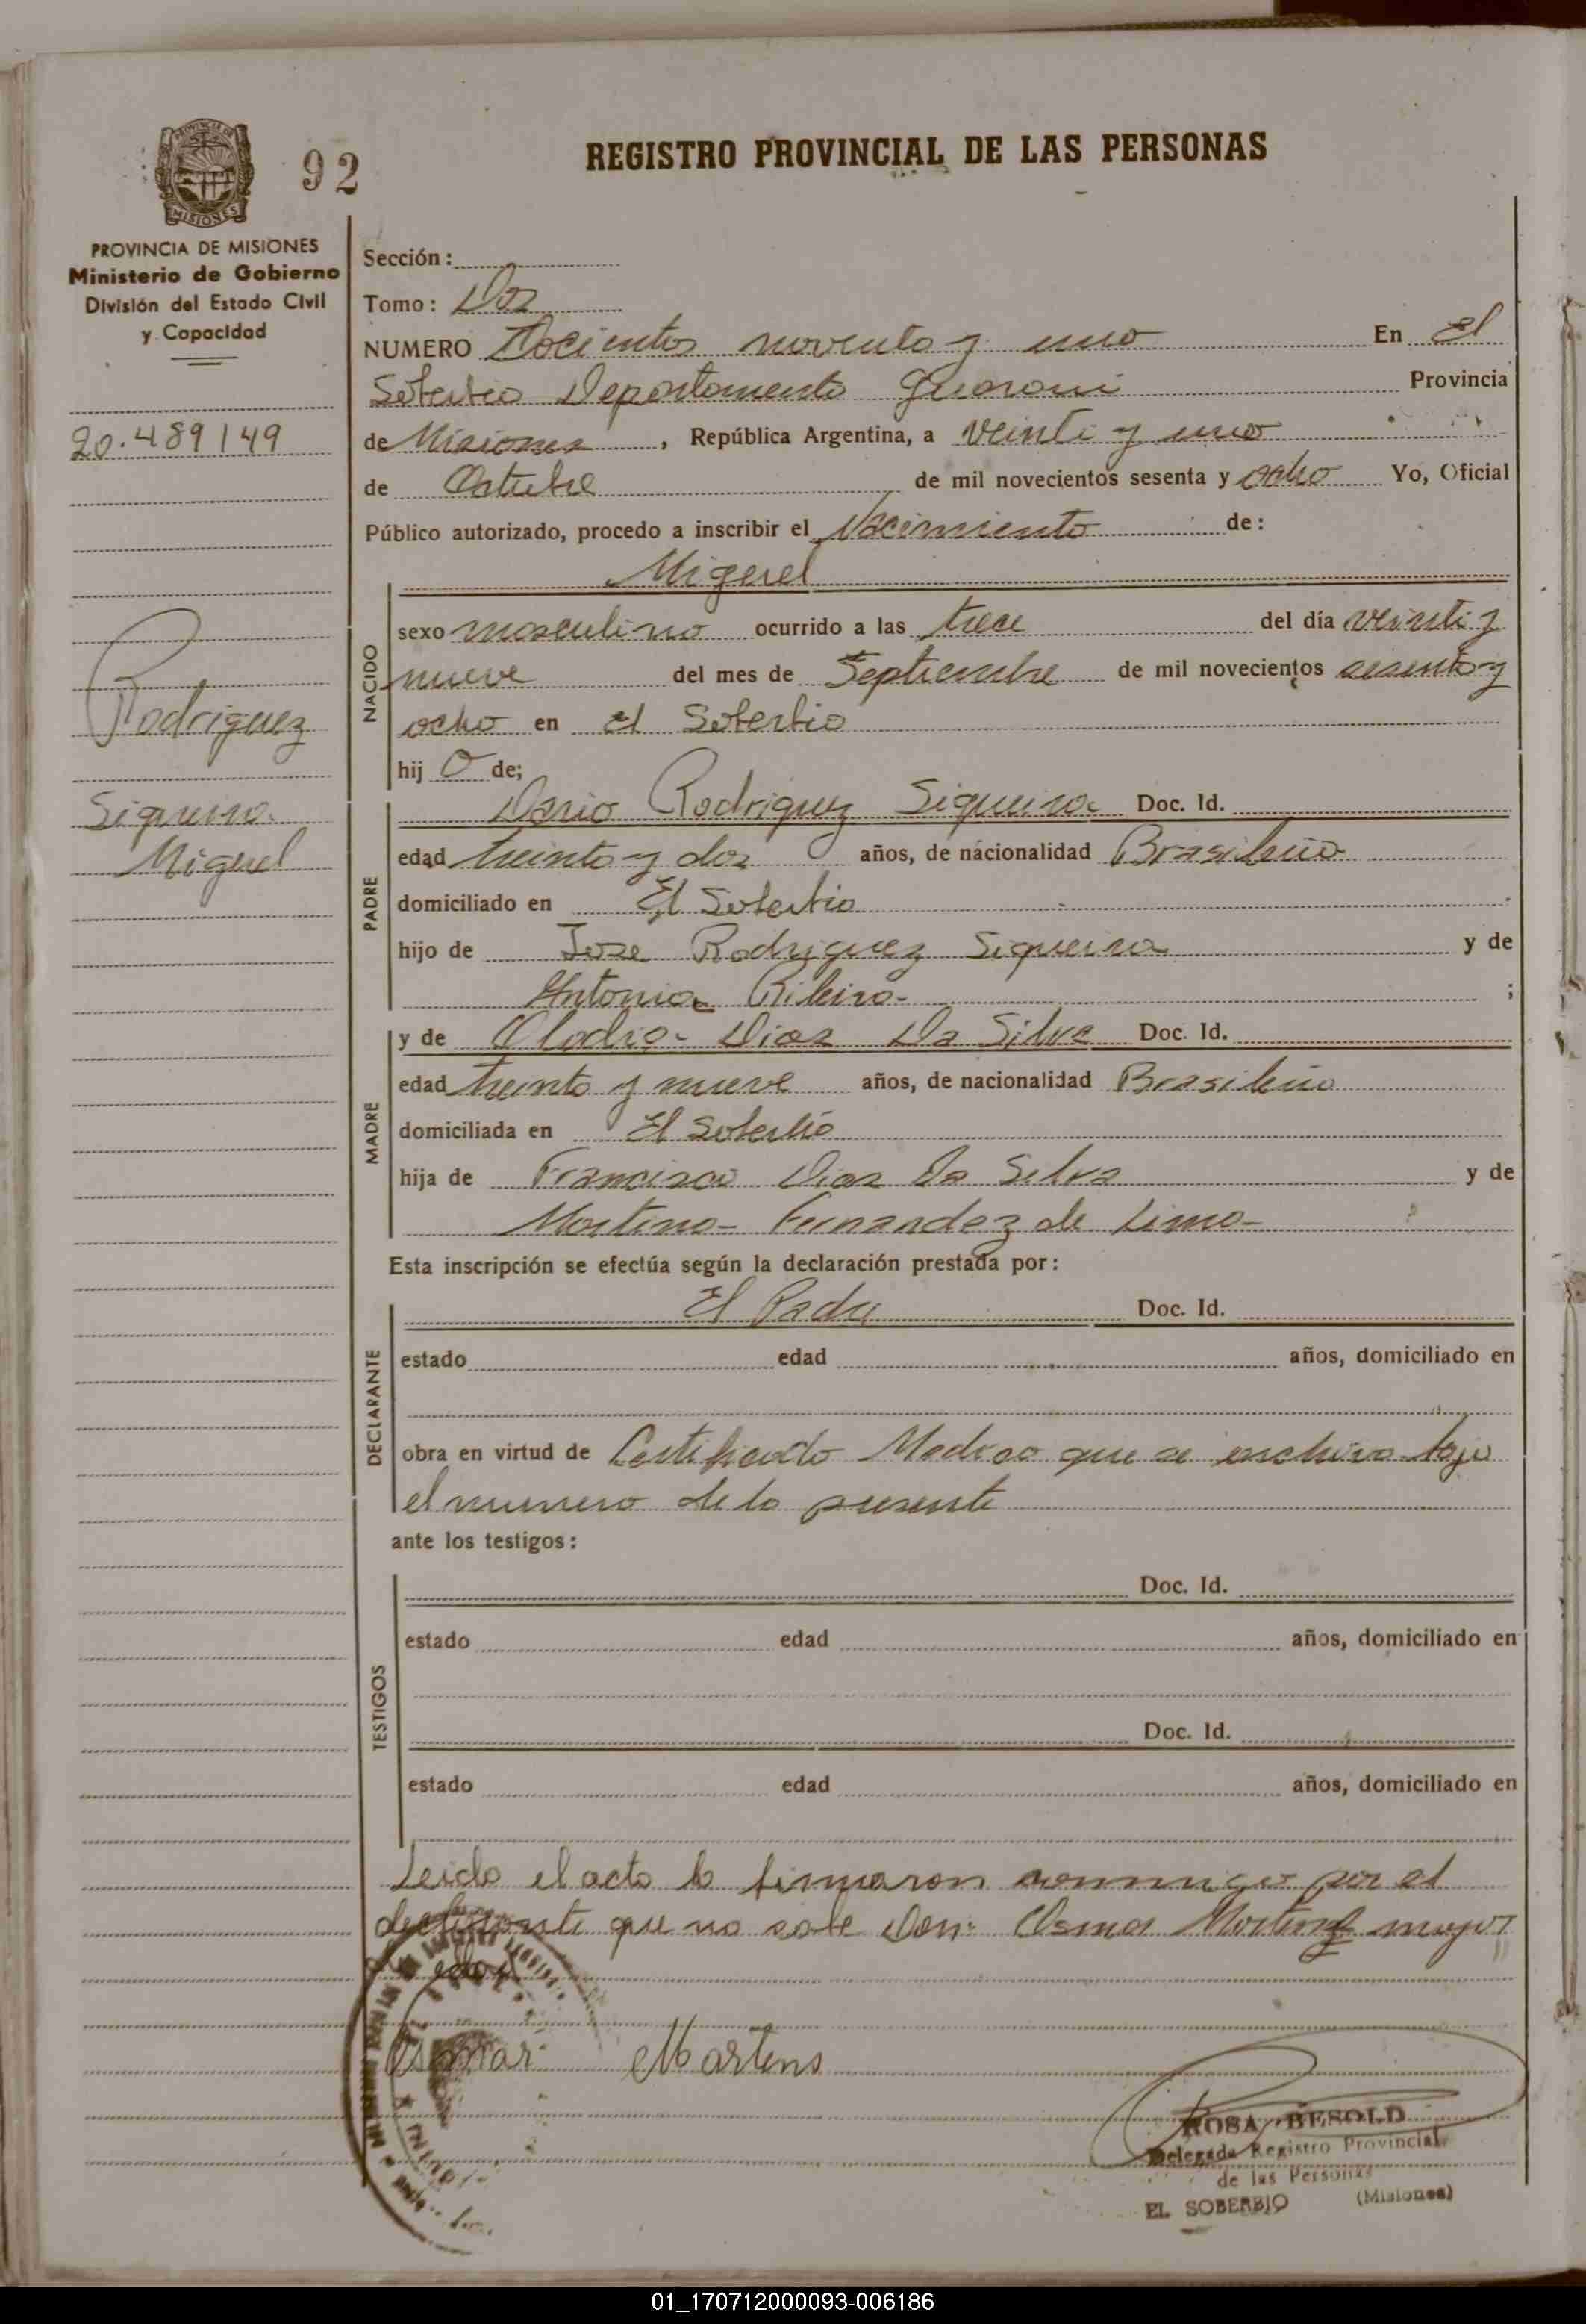 92
REGISTRO PROVINCIAL DE LAS PERSONAS
MISIONES
PROVINCIA DE MISIONES
Ministerio de Gobierno
División del Estado Civil
y Capacidad
20.489149
Rodriguez
Siqueira
Miguel
Sección:
Tomo: Dos
NUMERO Docientos noventa y uno En El
Soberbio Departamento Guarani Provincia
de Misiones, República Argentina, a veinti y uno
de Octubre de mil novecientos sesenta y ocho Yo, Oficial
Público autorizado, procedo a inscribir el Nacimiento de:
Miguel
NACIDO
sexo masculino ocurrido a las trece del día veinti y
nueve del mes de Septiembre de mil novecientos sesenta y
ocho en El Soberbio
hij o de;
PADRE
Dario Rodriguez Siqueira Doc. Id.
edad treinta y dos años, de nacionalidad Brasileño
domiciliado en El Soberbio
hijo de Jose Rodriguez Siqueira y de
Antonia Ribeiro ;
MADRE
y de Dias Da Silva Doc. Id.
edad treinta y nueve años, de nacionalidad Brasileña
domiciliada en El Soberbio
hija de Francisco Dias Da Silva y de
Martina Fernandez de Lima
Esta inscripción se efectúa según la declaración prestada por:
DECLARANTE
El Padre Doc. Id.
estado edad años, domiciliado en
obra en virtud de Certificado Medico que se archiva bajo
el numero de la presente
ante los testigos:
TESTIGOS
Doc. Id.
estado edad años, domiciliado en
Doc. Id.
estado edad años, domiciliado en
Leida el acta la firmaron conmigo por el
declarante que no sabe Don: Osmar mayor
edad
Osmar Martens
ROSA BESOLD
Delegada Registro Provincial
de las Personas
EL SOBERBIO (Misiones)
01_170712000093-006186